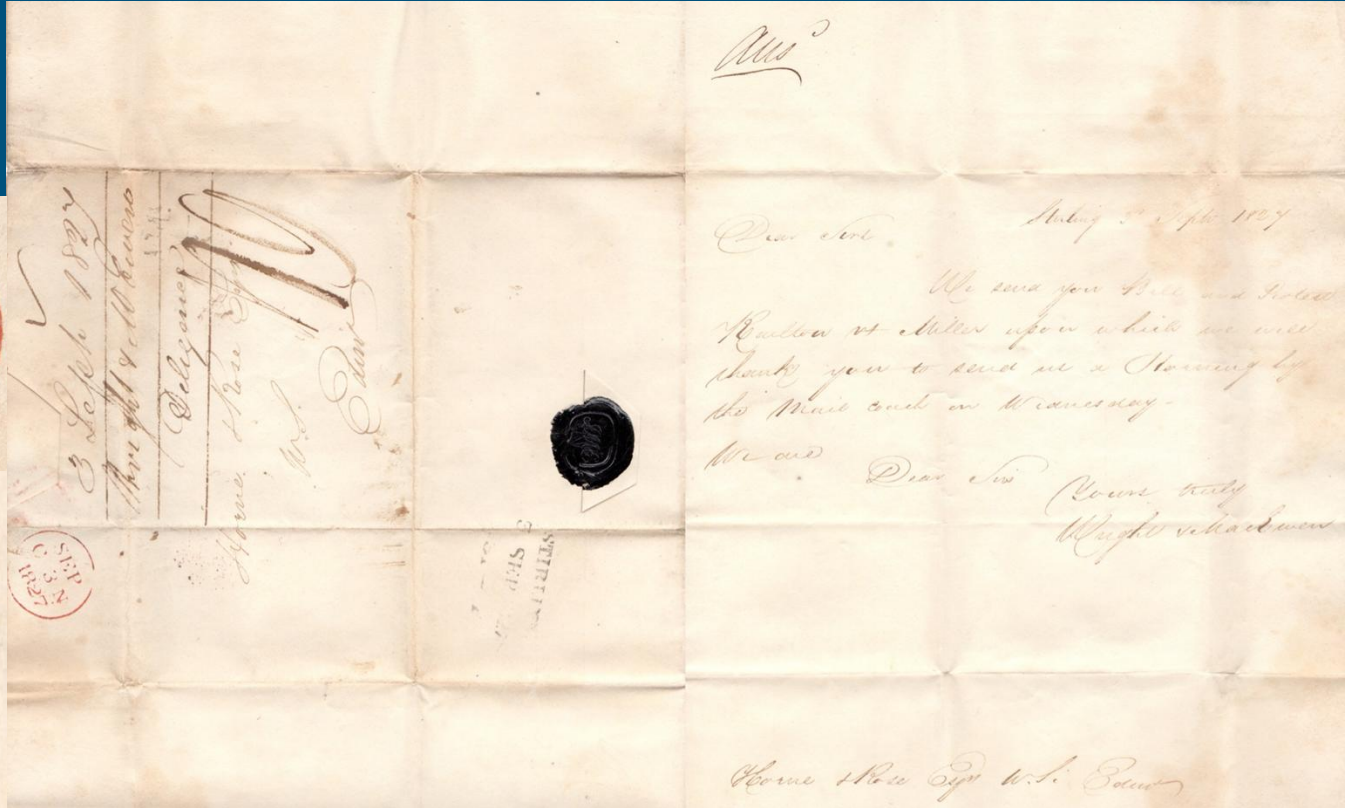 3 Sept 1827
Wright & McEwen
Deligence
Horne & Rose Esqrs
W.S.
Edinr
SEP
C 3 N
1827
STIRLING
3 SEP
Ansd
Stirling 3d Septr 1827
Dear Sirs
We send you Bill and Protest
vs Miller upon which we will
thank you to send us a Horning by
the Mail Coach on Wednesday -
We are
Dear Sirs
Yours truly
Wright & MacEwen
Horne & Rose Esqrs W.S. Edinr